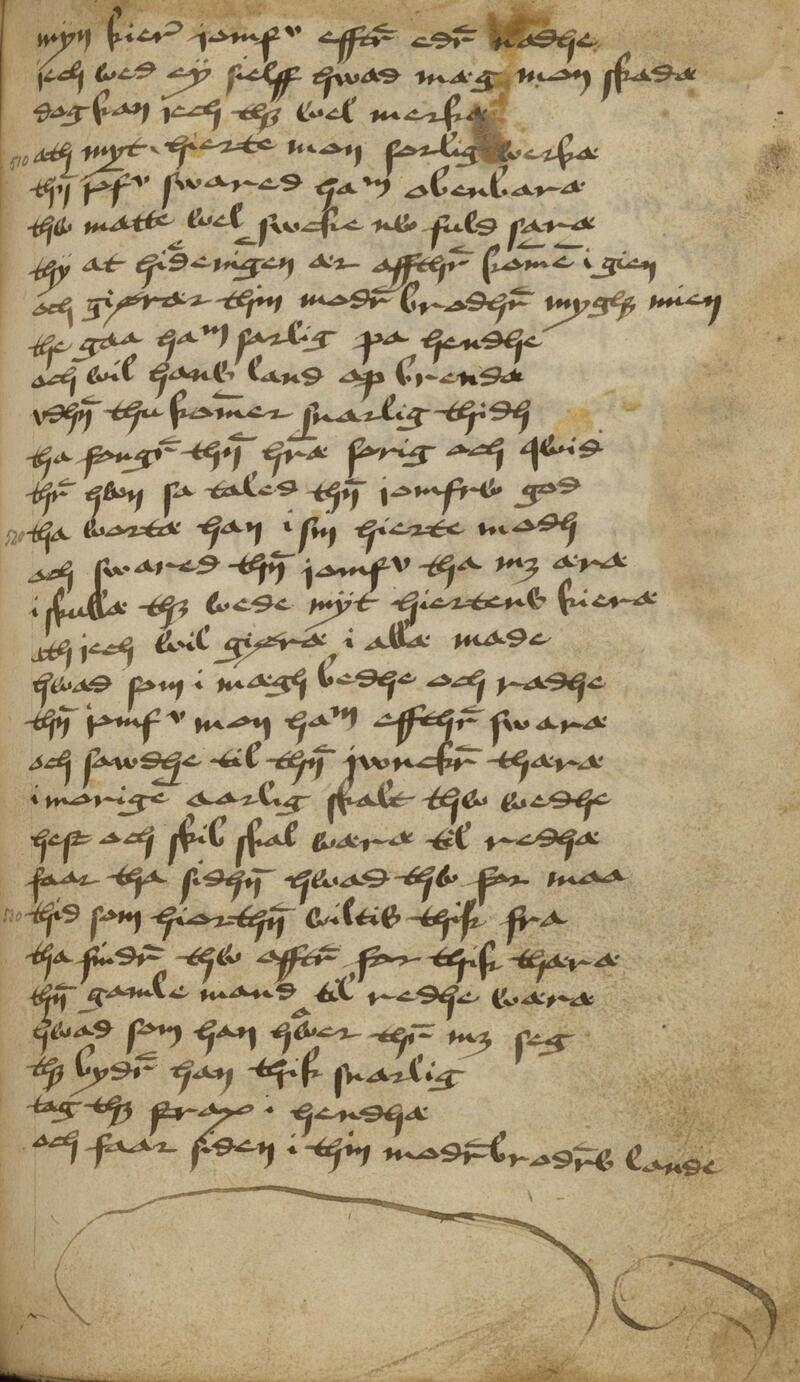 myn kier jomfv efftr̄ edr̄ nadhe
jech wed ey sielff hwad mæg mon skadæ
dog kan jech thꝫ wel merkæ
510 ath myt hierte mon sorlig werkæ
thn̄ jo̅fv swared haᵐ obenbaræ
thw matte wel swcke nw fuld saræ
thy at hidēnigen ær affthr̄ ko̅me̅ i gien
och giøræer thin modr̄ brodhr̄ mygkꝫ mien
the gaa haᵐ sarlig pa hendhe
och wil hans land op brendæ
vdhn̄ thu ko̅mer snarlig thidh
tha fongr̄ thn̄ hr̄æ sorig och qwid
thr̄ hwn sa taled thn̄ jomfrw god
520 tha wortæ han i sin hierte modh
och swared thn̄ jomfv tha mꝫ æræ
i skullæ thꝫ wede myt hiertens kieræ
ath jech wil giøræ i allæ made
hwad som i mægh bedhe och radhe
thn̄ jomfv mon haᵐ effthr̄ swaræ
och sawdhe til thn̄ jwnckr̄ thæræ
i morige̅ aarlig skalt thw wedhe
hest och skib skal wæræ til redhæ
faar tha sidhn̄ hwad thw for maa
530 thid som hiorthn̄ wiltis thik fra
tha findr̄ thw efftr̄ for thik thæræ
thn̄ gamle mand til redhe wæræ
hwad som han hwer thr̄ mꝫ seg
thꝫ bydr̄ han thik snarlig
tag thꝫ strax i hendhæ
och faar siden i thin modr̄brodr̄s lande